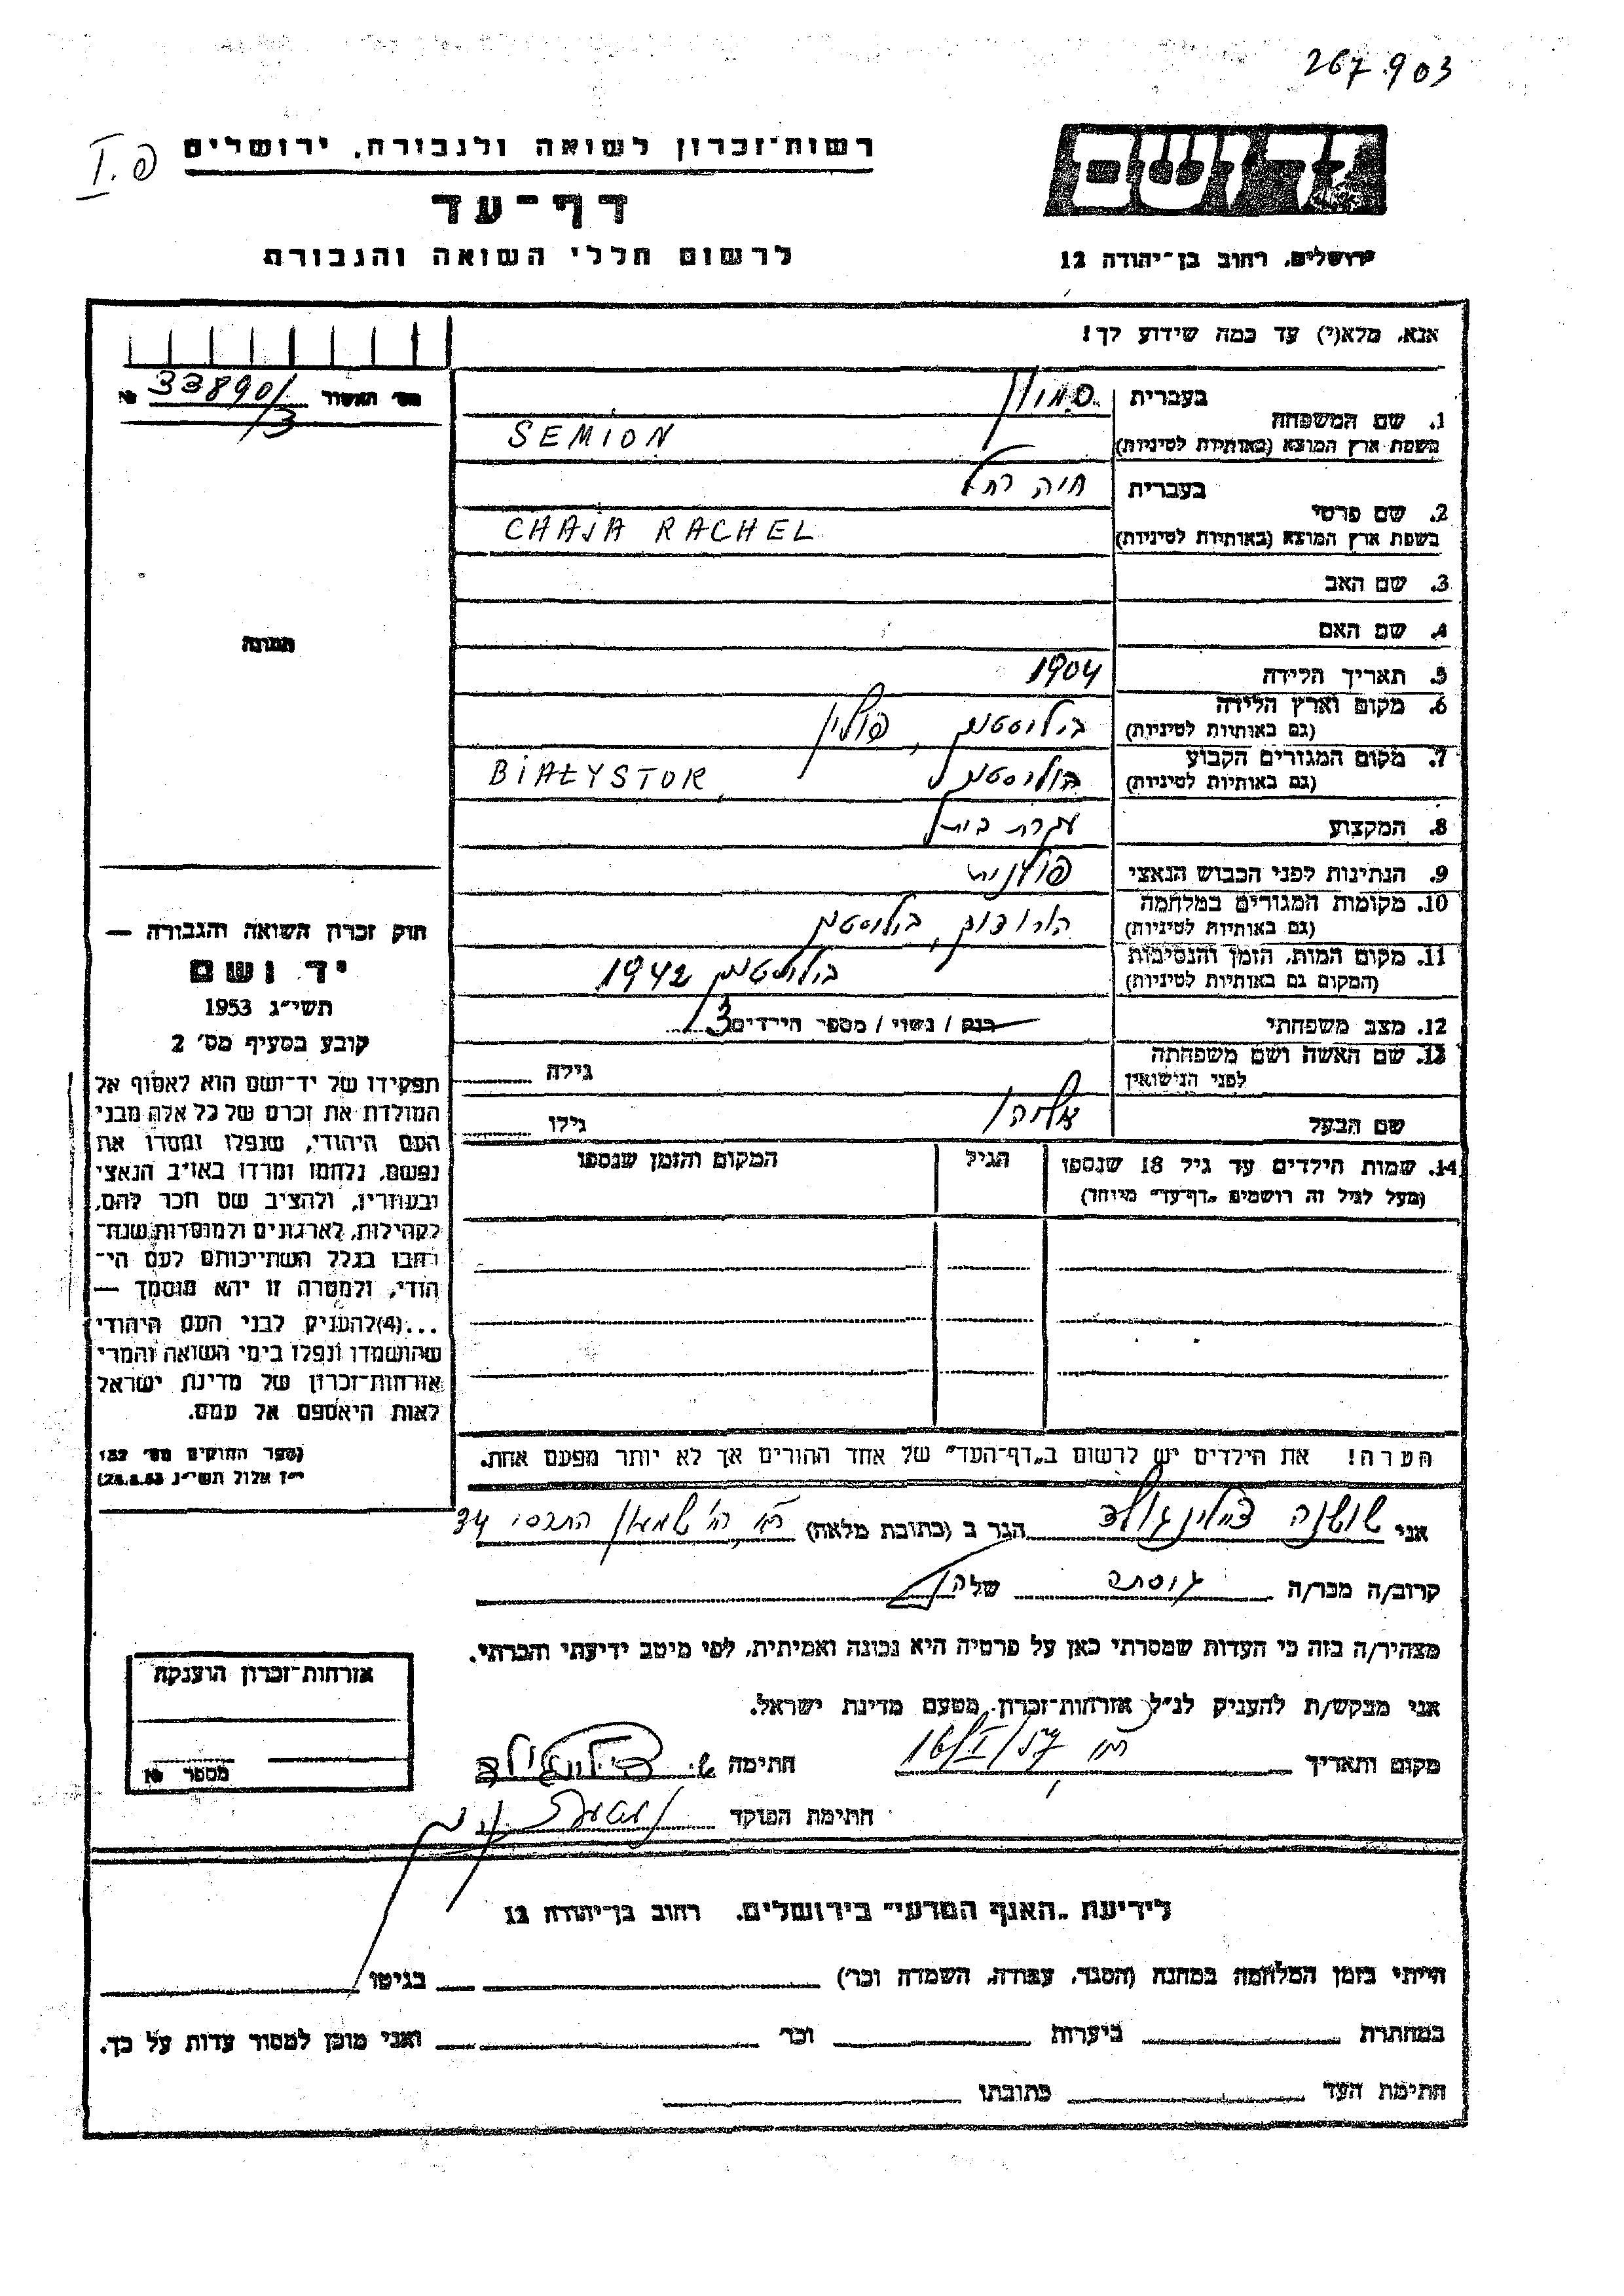 267.903
רשות־זכרון לשואה ולגבורה, ירושלים
I.פ
דף־עד
לרשום חללי השואה והגבורה
יד ושם
ירושלים, רחוב בן־יהודה 12
אנא, מלא(י) עד כמה שידוע לך!
מס׳ האשור 33890/3 №
תמונה
חוק זכרון השואה והגבורה —
יד ושם
תשי״ג 1953
קובע בסעיף מס׳ 2
תפקידו של יד־ושם הוא לאסוף אל
המולדת את זכרם של כל אלה מבני
העם היהודי, שנפלו ומסרו את
נפשם, נלחמו ומרדו באויב הנאצי
ובעוזריו, ולהציב שם וזכר להם,
לקהילות, לארגונים ולמוסדות שנח־
רבו בגלל השתייכותם לעם הי־
הודי, ולמטרה זו יהא מוסמך —
...(4)להעניק לבני העם היהודי
שהושמדו ונפלו בימי השואה והמרי
אזרחות־זכרון של מדינת ישראל
לאות היאספם אל עמם.
(ספר החוקים מס׳ 132
י״ז אלול תשי״ג 28.8.53)
1. שם המשפחה בעברית
בשפת ארץ המוצא (באותיות לטיניות) SEMION
2. שם פרטי בעברית חיה רחל
בשפת ארץ המוצא (באותיות לטיניות) CHAJA RACHEL
3. שם האב
4. שם האם
5. תאריך הלידה 1904
6. מקום וארץ הלידה ביליסטוק, פולין
(גם באותיות לטיניות)
7. מקום המגורים הקבוע ביליסטוק BIAŁYSTOK
(גם באותיות לטיניות)
8. המקצוע עקרת בית
9. הנתינות לפני הכבוש הנאצי פולנית
10. מקומות המגורים במלחמה הורודוק, ביליסטוק
(גם באותיות לטיניות)
11. מקום המות, הזמן והנסיבות ביליסטוק 1942
(המקום גם באותיות לטיניות)
12. מצב משפחתי רוק / נשוי / מספר הילדים 3
13. שם האשה ושם משפחתה גילה
לפני הנישואין
שם הבעל אליהו גילו
14. שמות הילדים עד גיל 18 שנספו הגיל המקום והזמן שנספו
(מעל לגיל זה רושמים „דף־עד״ מיוחד)
הערה! את הילדים יש לרשום ב„דף־העד״ של אחד ההורים אך לא יותר מפעם אחת.
אני שושנה הגר ב (כתובת מלאה) 34
קרוב/ה מכר/ה גיסתה של
מצהיר/ה בזה כי העדות שמסרתי כאן על פרטיה היא נכונה ואמיתית, לפי מיטב ידיעתי והכרתי.
אני מבקש/ת להעניק לנ״ל אזרחות־זכרון מטעם מדינת ישראל.
מקום ותאריך 16/I/57 חתימה ש.
חתימת הפוקד
אזרחות־זכרון הוענקה
מספר №
לידיעת „האגף המדעי״ בירושלים, רחוב בן־יהודה 12
הייתי בזמן המלחמה במחנה (הסגר, עבודה, השמדה וכו׳) בגיטו
במחתרת ביערות וכו׳ ואני מוכן למסור עדות על כך.
חתימת העד כתובתו